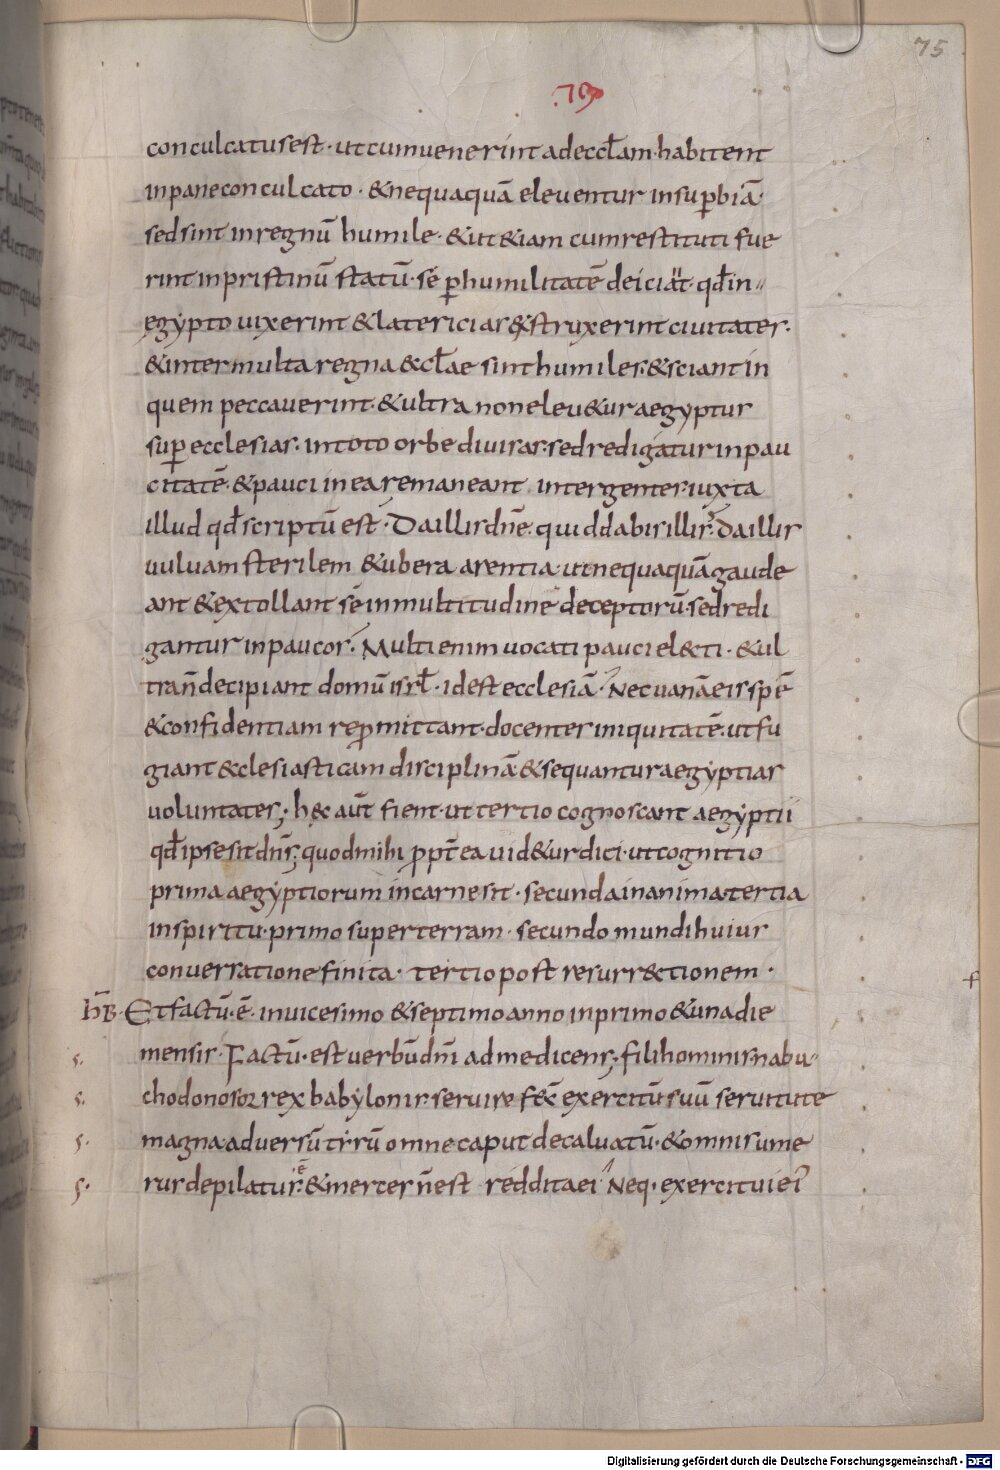 75
.79
conculcatus est · ut cum uenerint ad eccl̄am · habitent
in pane conculcato · & nequaquā eleuentur in suꝑbiā ·
sed sint in regnū humile · & ut &iam cum restituti fue
rint in pristinū statū · sē ꝑ humilitatē deiciāt · qđ in
egypto uixerint & latericias &struxerint ciuitates ·
& inter multa regna &cl̄ae sint humiles · & sciant in
quem peccauerint · & ultra non eleu&ur aegyptus
suꝑ ecclesias · in toto orbe diuisas · sed redigatur in pau
citatē · & pauci in ea remaneant inter gentes · iuxta
illud qđ scriptū est · Da illis dn̄e · quid dabis illis · da illis
uuluam sterilem & ubera arentia · ut nequaquā gaude
ant & extollant sē in multitudine deceptorū · sed redi
gantur in paucos · Multi enim uocati pauci el&ti · & ul
tra n̄ decipiant domū isrl̄ · id est ecclesiā · Nec uanā eis spē
& confidentiam reꝓmittant · docentes iniquitatē · ut fu
giant &clesiasticam disciplinā & sequantur aegyptias
uoluntates; h&c aūt fient · ut tertio cognoscant aegyptii
qđ ipse sit dn̄s; quod mihi ꝓpt̄ea uid&ur dici · ut cognitio
prima aegyptiorum in carne sit · secunda in anima · tertia
in spiritu · primo super terram · secundo mundi huius
conuersatione finita · tertio post resurr&tionem ·
h̄B · Et factū · ē · in uicesimo & septimo anno in primo & una die
s. mensis · Factū · est uerbū dn̄i ad me dicens; fili hominis nabu
s. chodonosor rex babylonis · seruire fec̄ exercitū suū seruitute
s. magna aduersū tyrū omne caput decaluatū · & omnis ume
s. rus depilatus · ē · & merces n̄ est reddita ei · Neq · exercitui ei
Digitalisierung gefördert durch die Deutsche Forschungsgemeinschaft - DFG